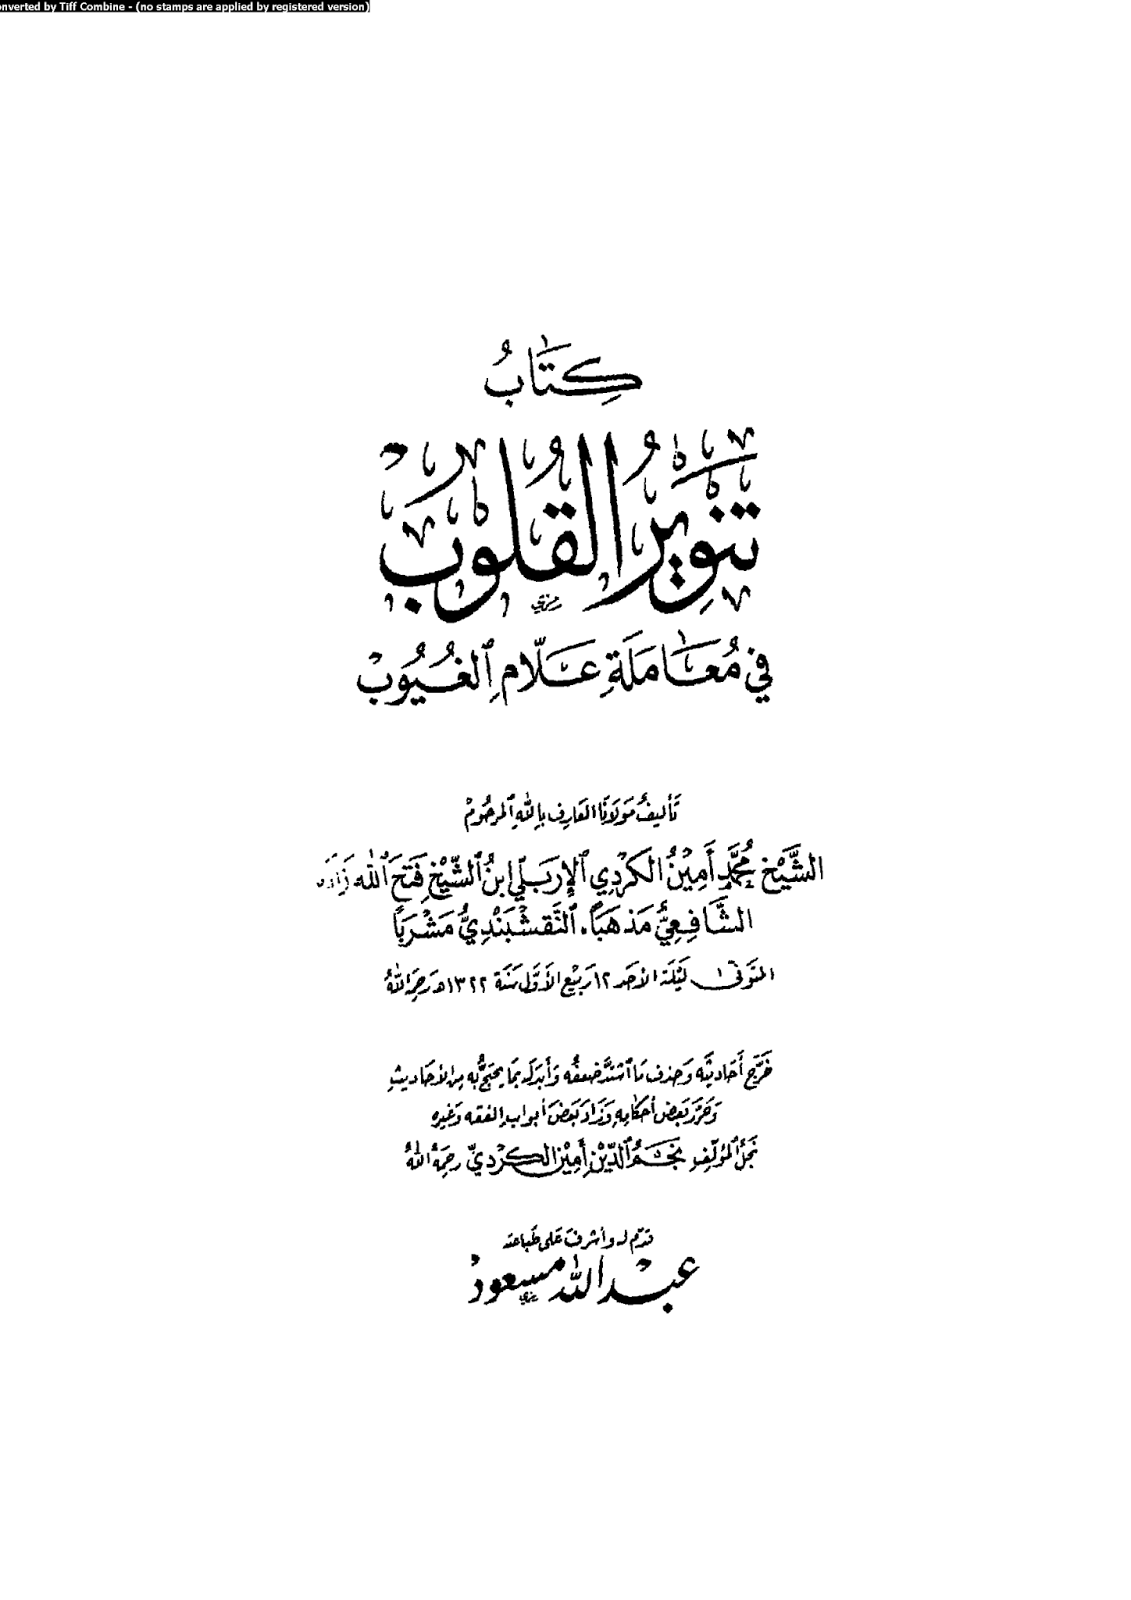 onverted by Tiff Combine - (no stamps are applied by registered version)
كِتَابُ
تَنْوِيرُ الْقُلُوبْ
في مُعَامَلَةِ عَلَّامِ الغُيُوبْ
تَأليفُ مَوْلَانَا العَارِف بِاللهِ المَرْحُومْ
الشَّيْخ مُحَمَّد أَمِينُ الكُرْدِي الإِرْبَلِّي ابنُ الشَّيْخِ فَتَحَ الله زَادَه
الشَّافِعِيُّ مَذهَبًا، النَّقشبَندِيُّ مَشْرَبًا
المتَوَفّى لَيْلَة الأحَد ١٢ رَبيْع الأوَّل سَنَة ١٣٢٢هـ رَحِمَهُ اللهُ
خَرَّجَ أَحَاديثَه وَحذف مَا اشتدَّ ضعفُه وَأبدَلَه بمَا يحتجُّ به مِن الأحَاديثِ
وَحَرَّر بَعض أحكامِهِ وَزَادَ بَعْضَ أبواب الفقه وَغيره
نَجلُ المؤلّفِ نَجْمُ الدِّيْن أَمِيْن الكُرْديّ رَحِمَهُ اللهُ
قدّم له وأشرفَ عَلى طَبَاعته
عَبْد الله مسعُود